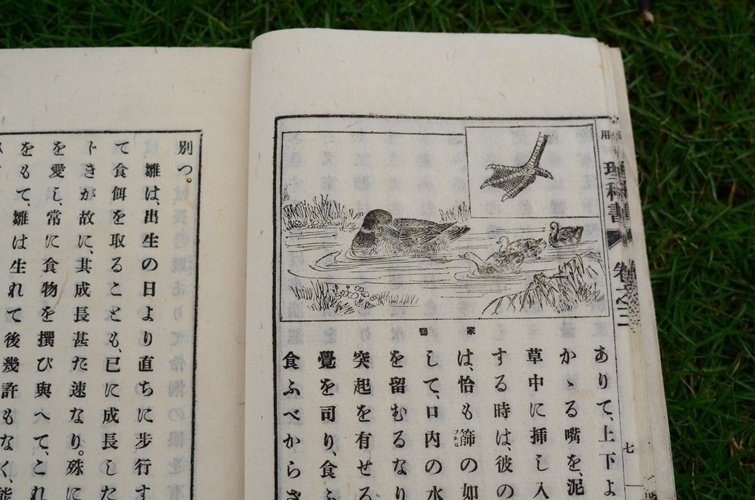 用
理科書
巻之三
七
家鴨
ありて、上下よ
かゝる嘴を、泥
草中に挿し入
する時は、彼の
は、恰も篩の如
して、口内の水
を留むるなり
突起を有せる
覺を司り、食ふ
食ふべからざ
別つ。
雛は、出生の日より直ちに步行す
て食餌を取ることも、已に成長した
きが故に、其成長甚だ速なり。殊に
を愛し、常に食物を撰び與へて、これ
をもて、雛は生れて後幾許もなく、能